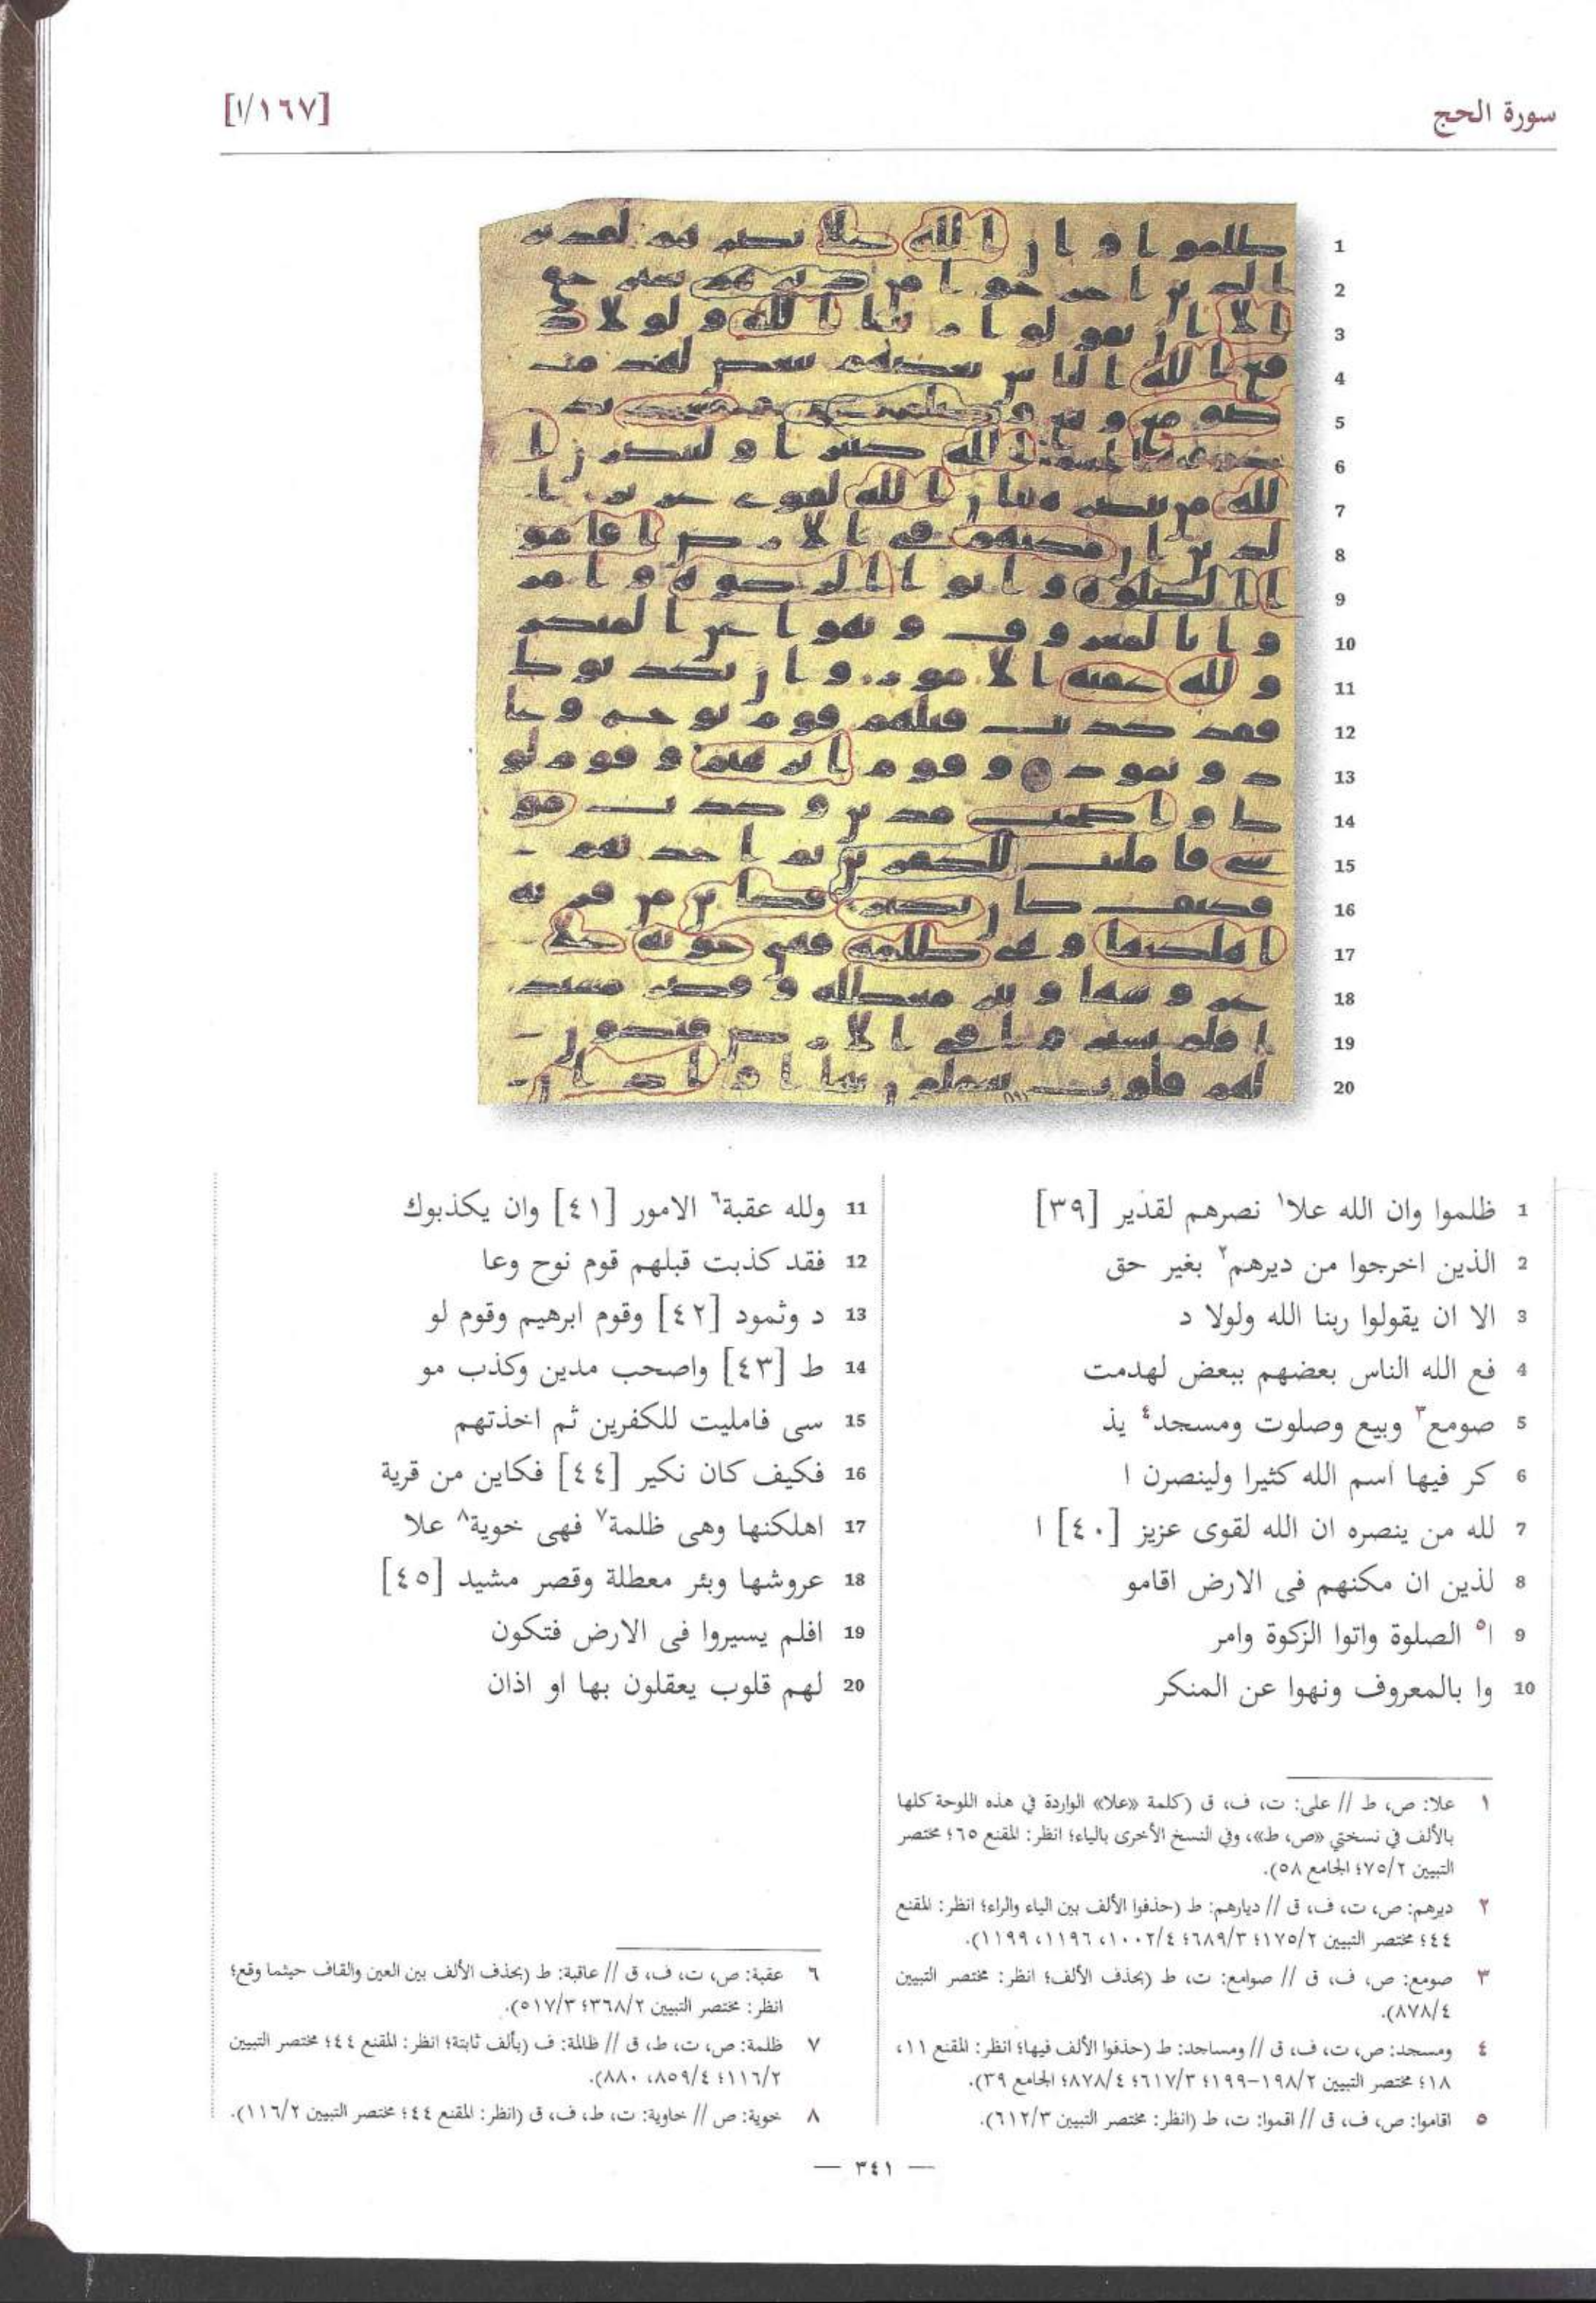 سورة الحج
[١٦٧/ا]
1 ظلموا وان الله علا١ نصرهم لقدير [٣٩]
2 الذين اخرجوا من ديرهم٢ بغير حق
3 الا ان يقولوا ربنا الله ولولا د
4 فع الله الناس بعضهم ببعض لهدمت
5 صومع٣ وبيع وصلوت ومسجد٤ يذ
6 كر فيها اسم الله كثيرا ولينصرن ا
7 لله من ينصره ان الله لقوى عزيز [٤٠] ا
8 لذين ان مكنهم فى الارض اقامو
9 ا٥ الصلوة واتوا الزكوة وامر
10 وا بالمعروف ونهوا عن المنكر
11 ولله عقبة٦ الامور [٤١] وان يكذبوك
12 فقد كذبت قبلهم قوم نوح وعا
13 د وثمود [٤٢] وقوم ابرهيم وقوم لو
14 ط [٤٣] واصحب مدين وكذب مو
15 سى فامليت للكفرين ثم اخذتهم
16 فكيف كان نكير [٤٤] فكاين من قرية
17 اهلكنها وهى ظلمة٧ فهى خوية٨ علا
18 عروشها وبئر معطلة وقصر مشيد [٤٥]
19 افلم يسيروا فى الارض فتكون
20 لهم قلوب يعقلون بها او اذان
١ علا: ص، ط // على: ت، ف، ق (كلمة «علا» الواردة في هذه اللوحة كلها
بالألف في نسختي «ص، ط»، وفي النسخ الأخرى بالياء؛ انظر: المقنع ٦٥؛ مختصر
التبيين ٧٥/٢؛ الجامع ٥٨).
٢ ديرهم: ص، ت، ف، ق // ديارهم: ط (حذفوا الألف بين الياء والراء؛ انظر: المقنع
٤٤؛ مختصر التبيين ١٧٥/٢؛ ٦٨٩/٣؛ ١٠٠٢/٤، ١١٩٦، ١١٩٩).
٣ صومع: ص، ف، ق // صوامع: ت، ط (بحذف الألف؛ انظر: مختصر التبيين
٨٧٨/٤).
٤ ومسجد: ص، ت، ف، ق // ومساجد: ط (حذفوا الألف فيها؛ انظر: المقنع ١١،
١٨؛ مختصر التبيين ١٩٨/٢-١٩٩؛ ٦١٧/٣؛ ٨٧٨/٤؛ الجامع ٣٩).
٥ اقاموا: ص، ف، ق // اقموا: ت، ط (انظر: مختصر التبيين ٦١٢/٣).
٦ عقبة: ص، ت، ف، ق // عاقبة: ط (بحذف الألف بين العين والقاف حيثما وقع؛
انظر: مختصر التبيين ٣٦٨/٢؛ ٥١٧/٣).
٧ ظلمة: ص، ت، ط، ق // ظالمة: ف (بألف ثابتة؛ انظر: المقنع ٤٤؛ مختصر التبيين
١١٦/٢؛ ٨٥٩/٤، ٨٨٠).
٨ خوية: ص // خاوية: ت، ط، ف، ق (انظر: المقنع ٤٤؛ مختصر التبيين ١١٦/٢).
— ٣٤١ —